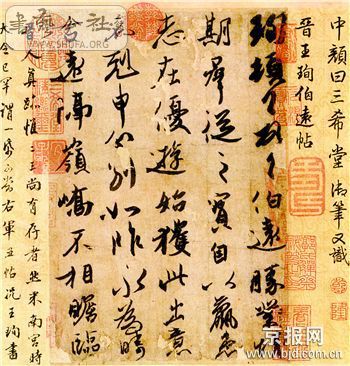 中顔曰三希堂御筆又識
晉王珣伯遠帖
珣頓首頓首伯遠勝業情
期羣從之寶自以羸患
志在優遊始獲此出意
剋申分別如昨永為疇
遠隔嶺嶠不相瞻臨
人真跡惟二王尚有存者然米南宮時
大令已罕謂一紙可當右軍五帖況王珣書
WWW.SHUFA.ORG
京报网
www.bjd.com.cn